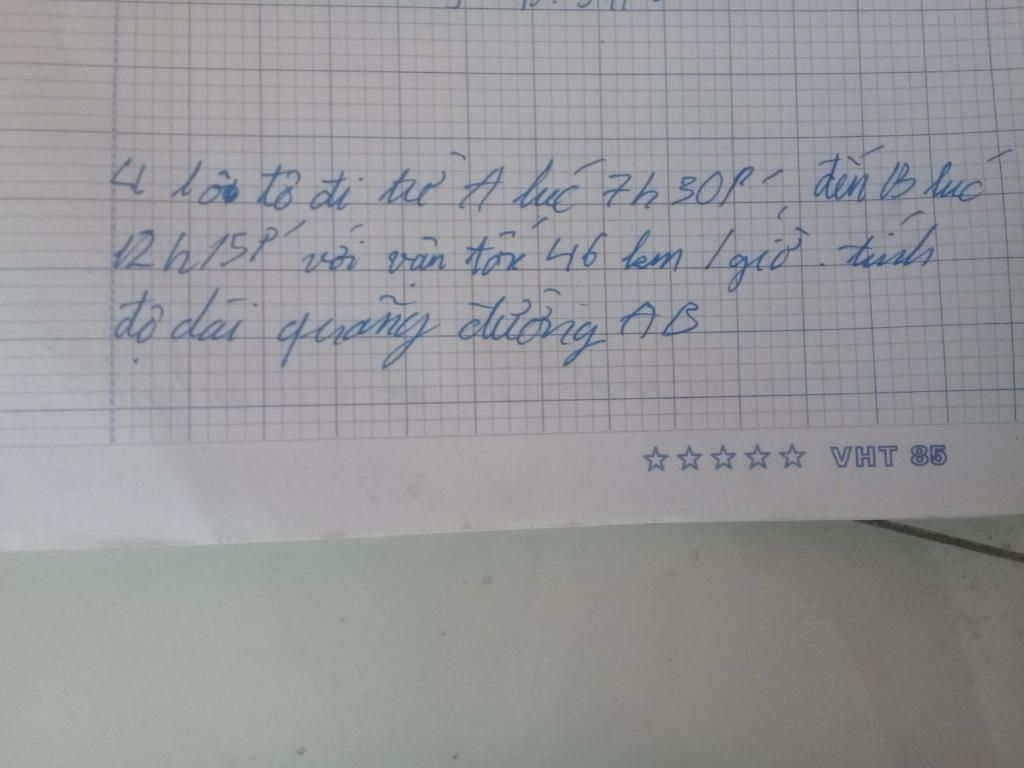 4 1 ô tô đi từ A lúc 7h30P' đến B lúc
12h15P' với vận tốc 46 km/giờ. tính
độ dài quãng đường AB
VHT 85